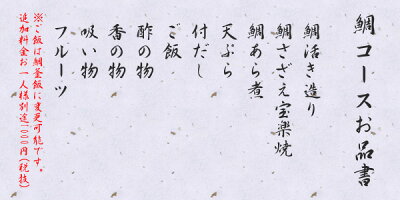 鯛コースお品書
鯛活き造り
鯛さざえ宝楽焼
鯛あら煮
天ぷら
付だし
ご飯
酢の物
香の物
吸い物
フルーツ
※ご飯は鯛釜飯に変更可能です。
追加料金お一人様別途1000円(税抜)